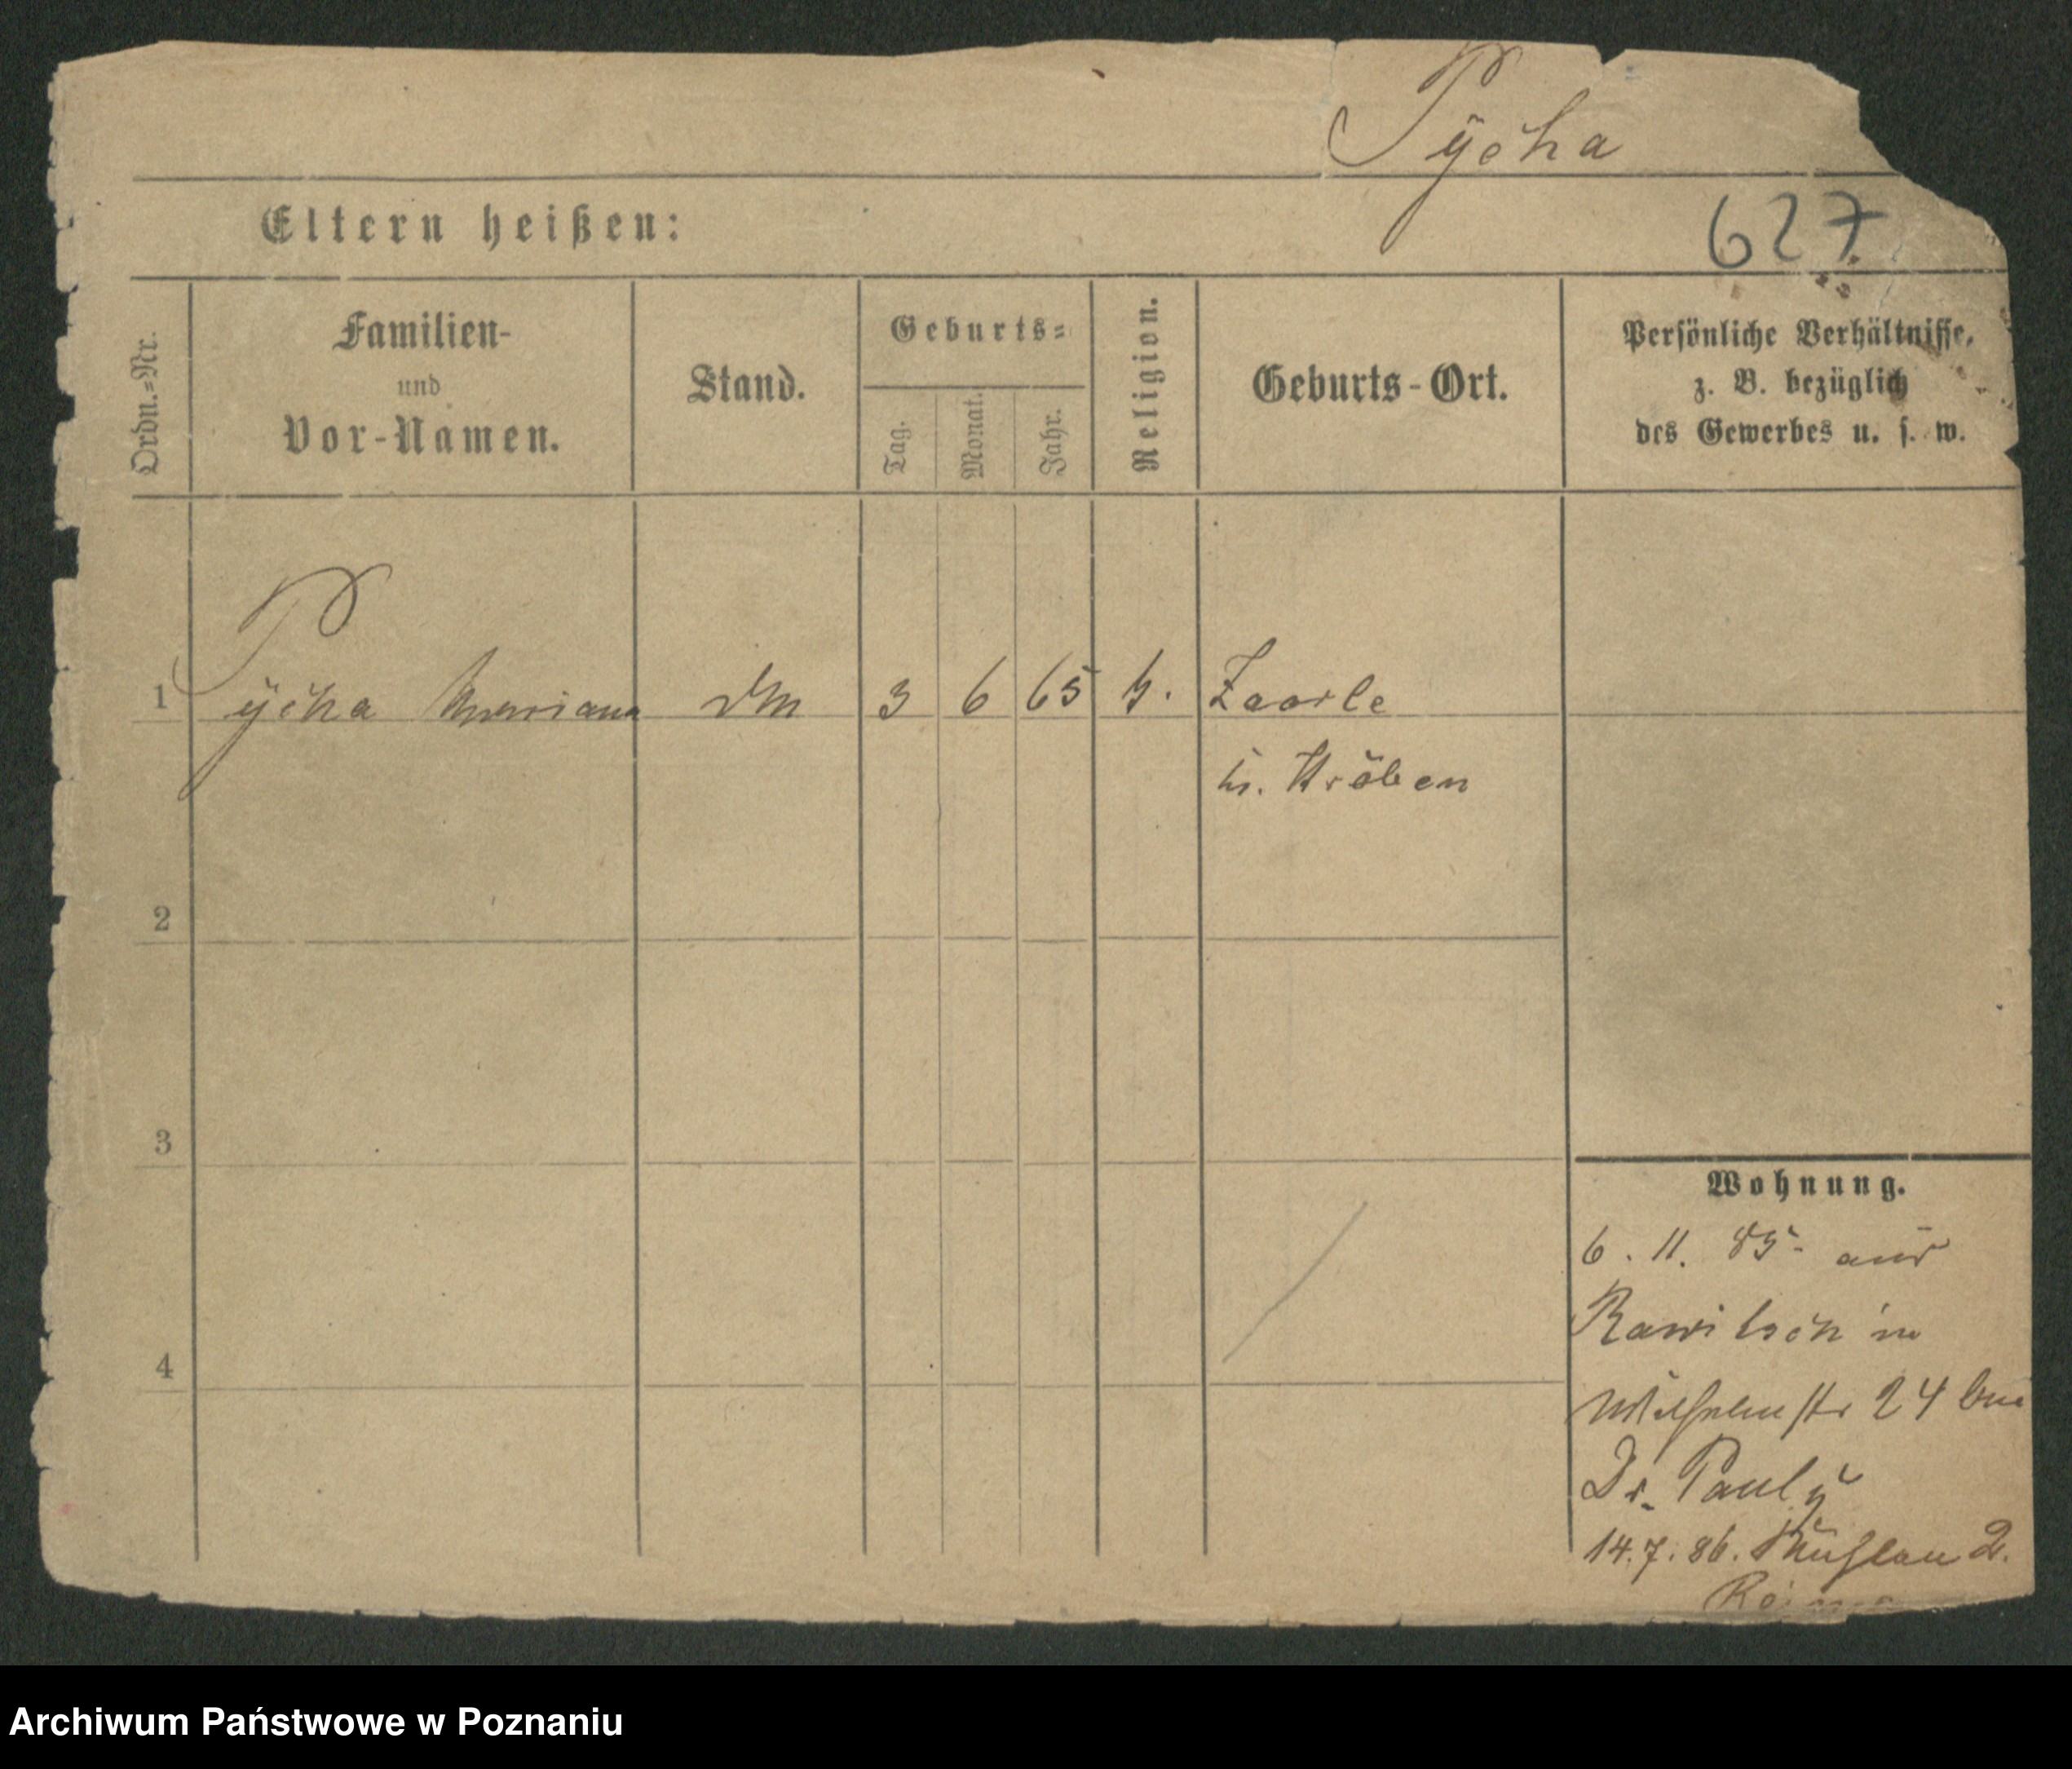 Pycha
Eltern heißen:
627
Ordn.=Nr.
Familien-
und
Vor-Namen.
Stand.
Geburts=
Tag.
Monat.
Jahr.
Religion.
Geburts-Ort.
Persönliche Verhältnisse,
z. B. bezüglich
des Gewerbes u. s. w.
1 Pycha Mariana 3 6 65 k. Zaorle
Kr. Kröben
2
3
4
Wohnung.
6. 11. 85. aus
Rawitsch in
Wilhelmstr 24 bei
Dr. Pauly
14.7.86. 2.
Archiwum Państwowe w Poznaniu